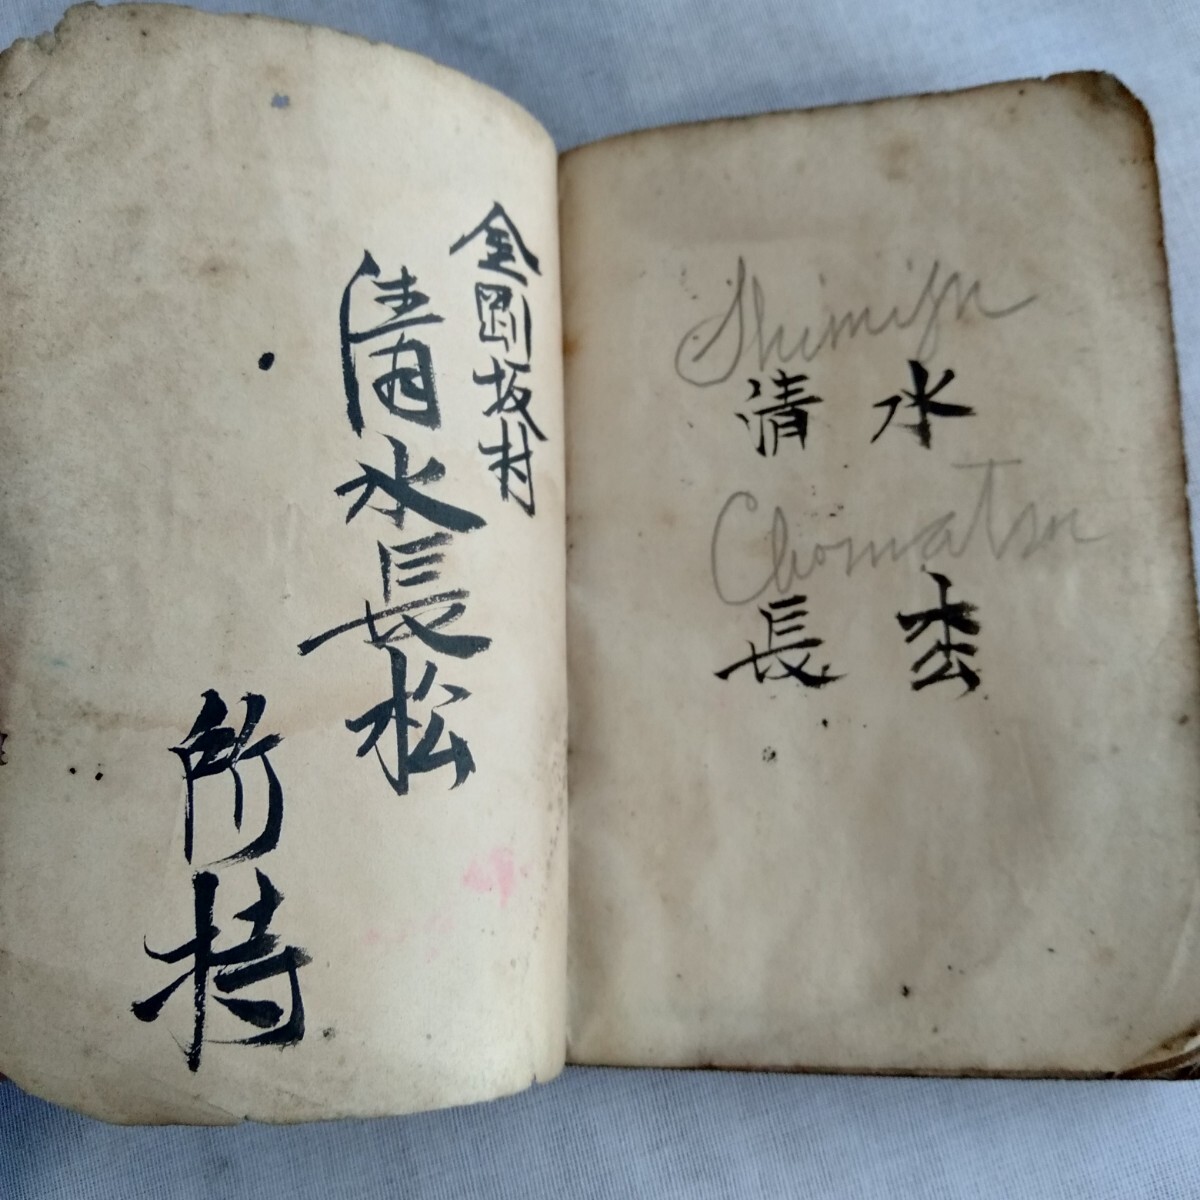 金剛坂村
清水長松
所持
Shimizu
清水
Chomatsu
長枩